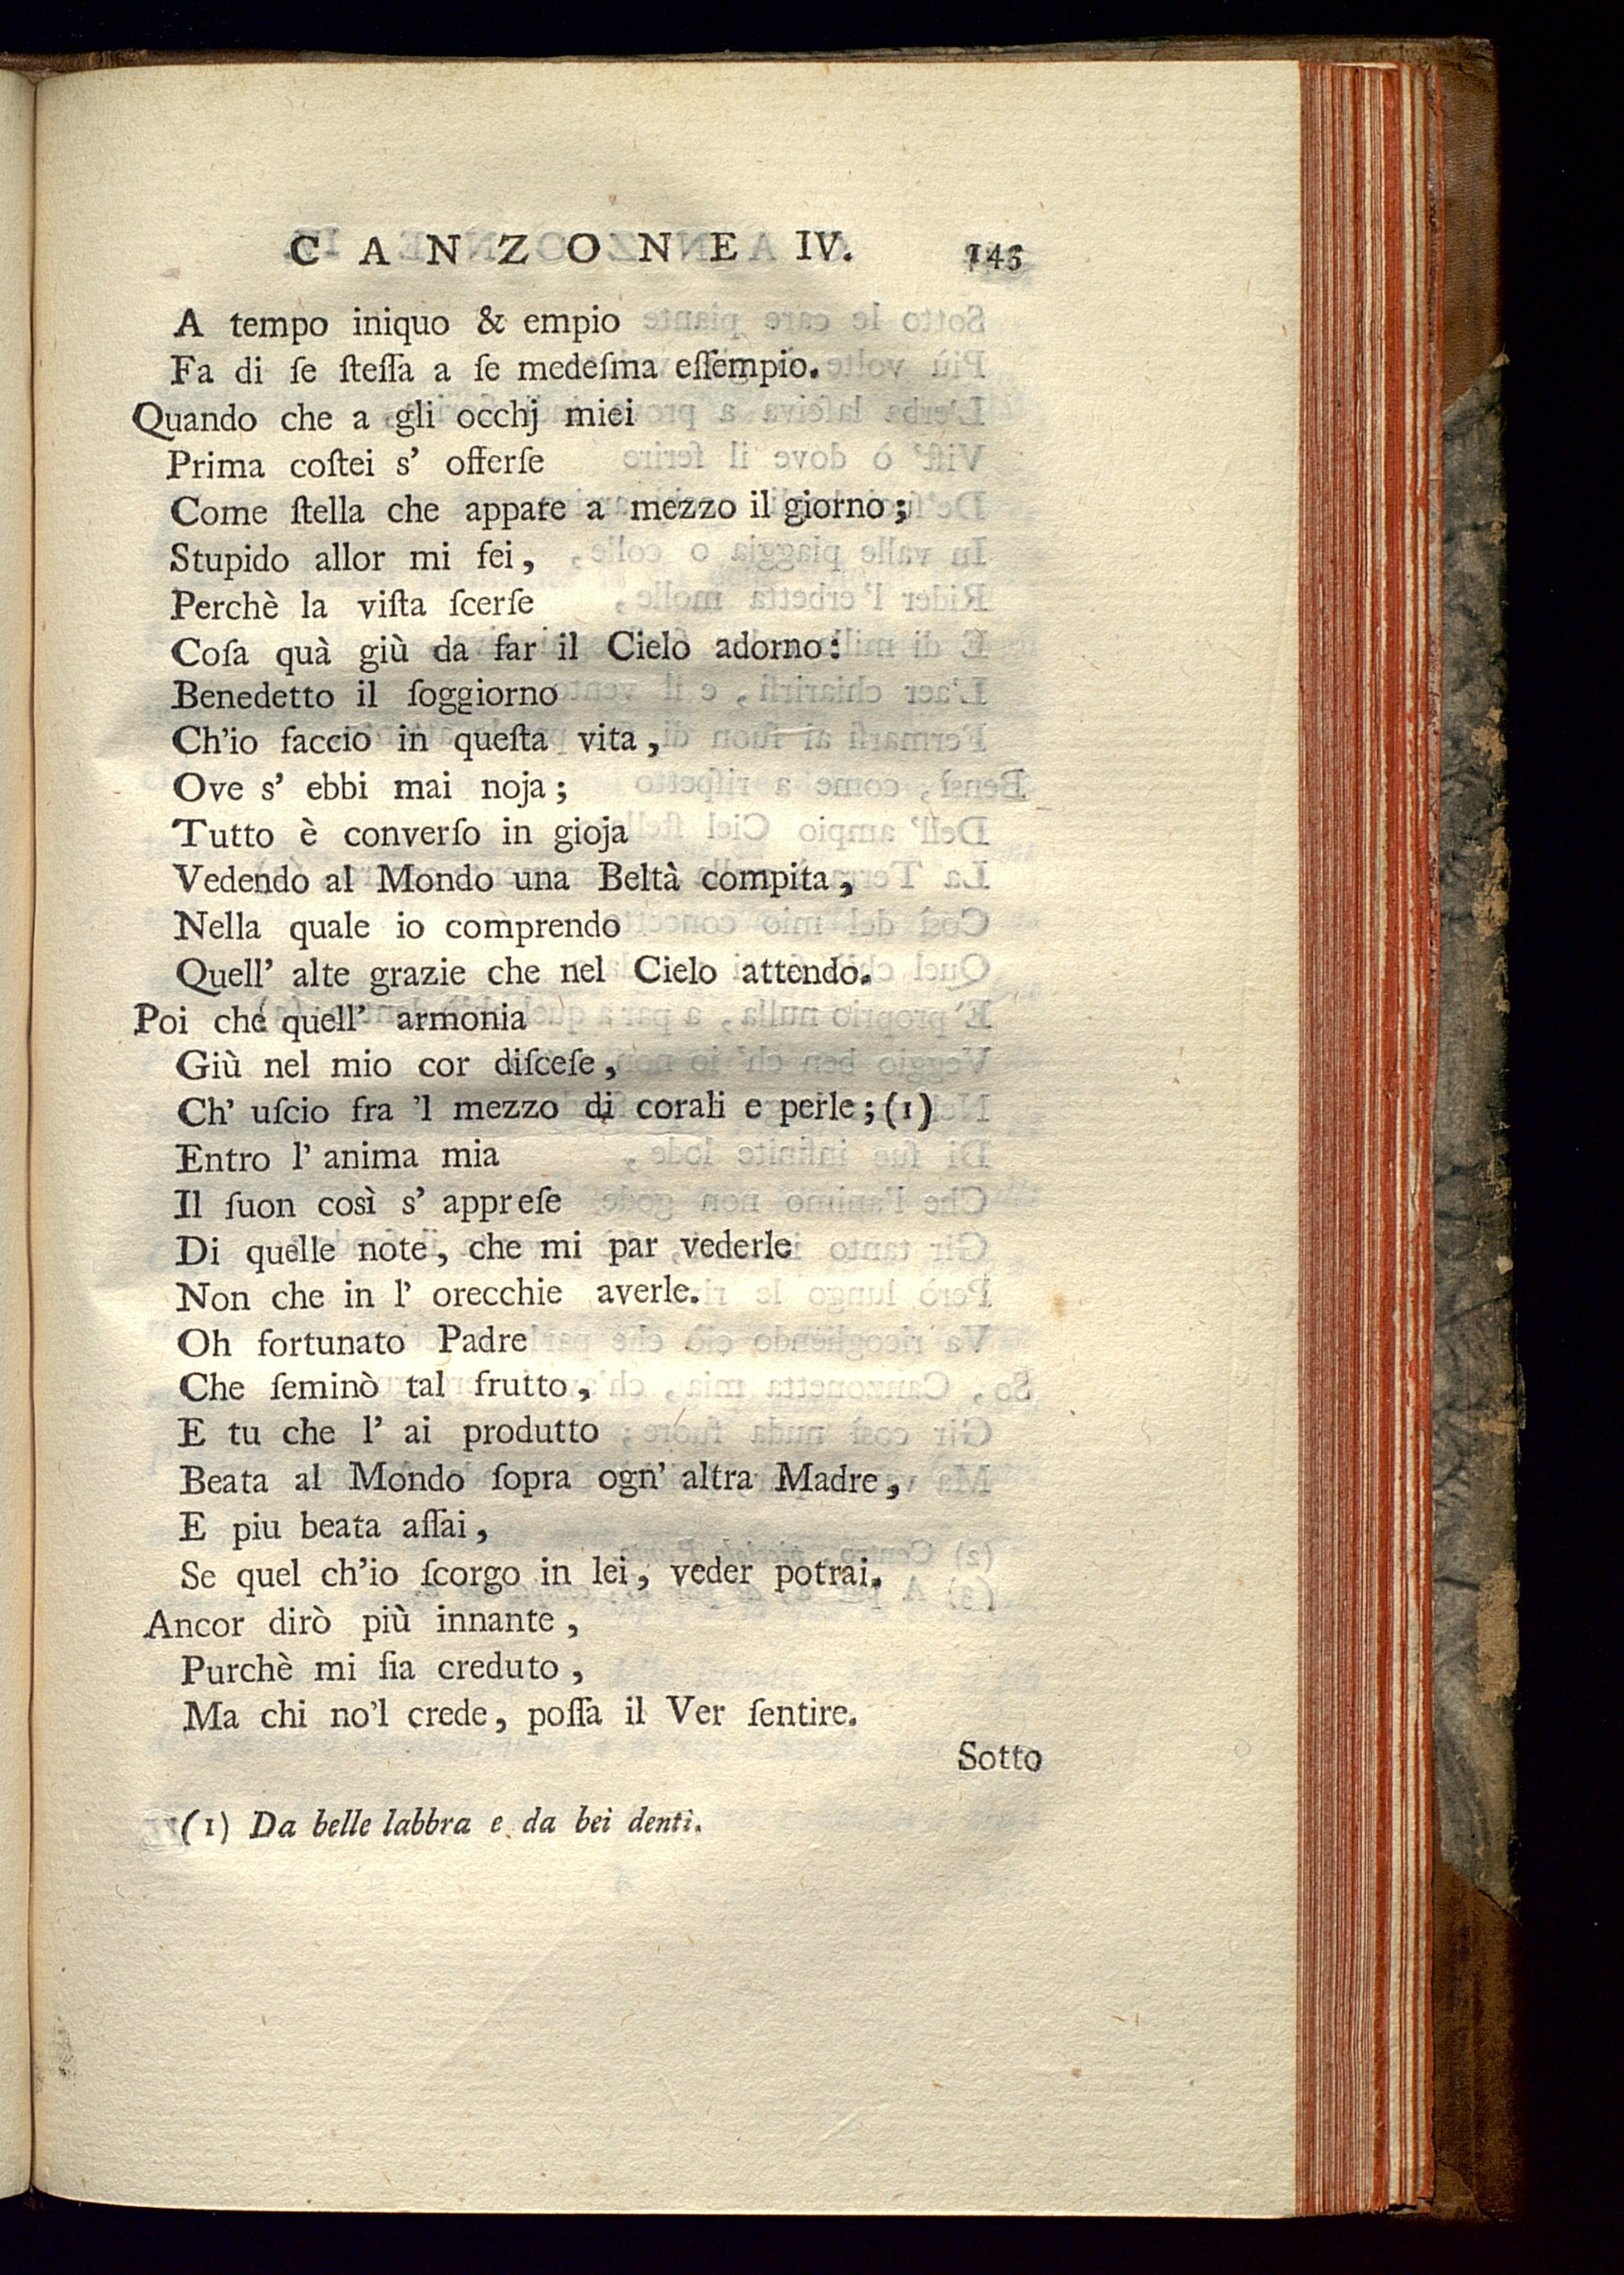 CANZONE IV. 145
A tempo iniquo & empio
Fa di ſe ſteſſa a ſe medeſma eſſempio.
Quando che a gli occhj miei
Prima coſtei s' offerſe
Come ſtella che appare a mezzo il giorno;
Stupido allor mi fei,
Perchè la viſta ſcerſe
Coſa quà giù da far il Cielo adorno:
Benedetto il ſoggiorno
Ch'io faccio in queſta vita,
Ove s' ebbi mai noja;
Tutto è converſo in gioja
Vedendo al Mondo una Beltà compita,
Nella quale io comprendo
Quell' alte grazie che nel Cielo attendo.
Poi che quell' armonia
Giù nel mio cor diſceſe,
Ch' uſcio fra 'l mezzo di corali e perle; (1)
Entro l' anima mia
Il ſuon così s' appreſe
Di quelle note, che mi par vederle
Non che in l' orecchie averle.
Oh fortunato Padre
Che ſeminò tal frutto,
E tu che l' ai produtto
Beata al Mondo ſopra ogn' altra Madre,
E piu beata aſſai,
Se quel ch'io ſcorgo in lei, veder potrai.
Ancor dirò più innante,
Purchè mi ſia creduto,
Ma chi no'l crede, poſſa il Ver ſentire.
Sotto
(1) Da belle labbra e da bei denti.